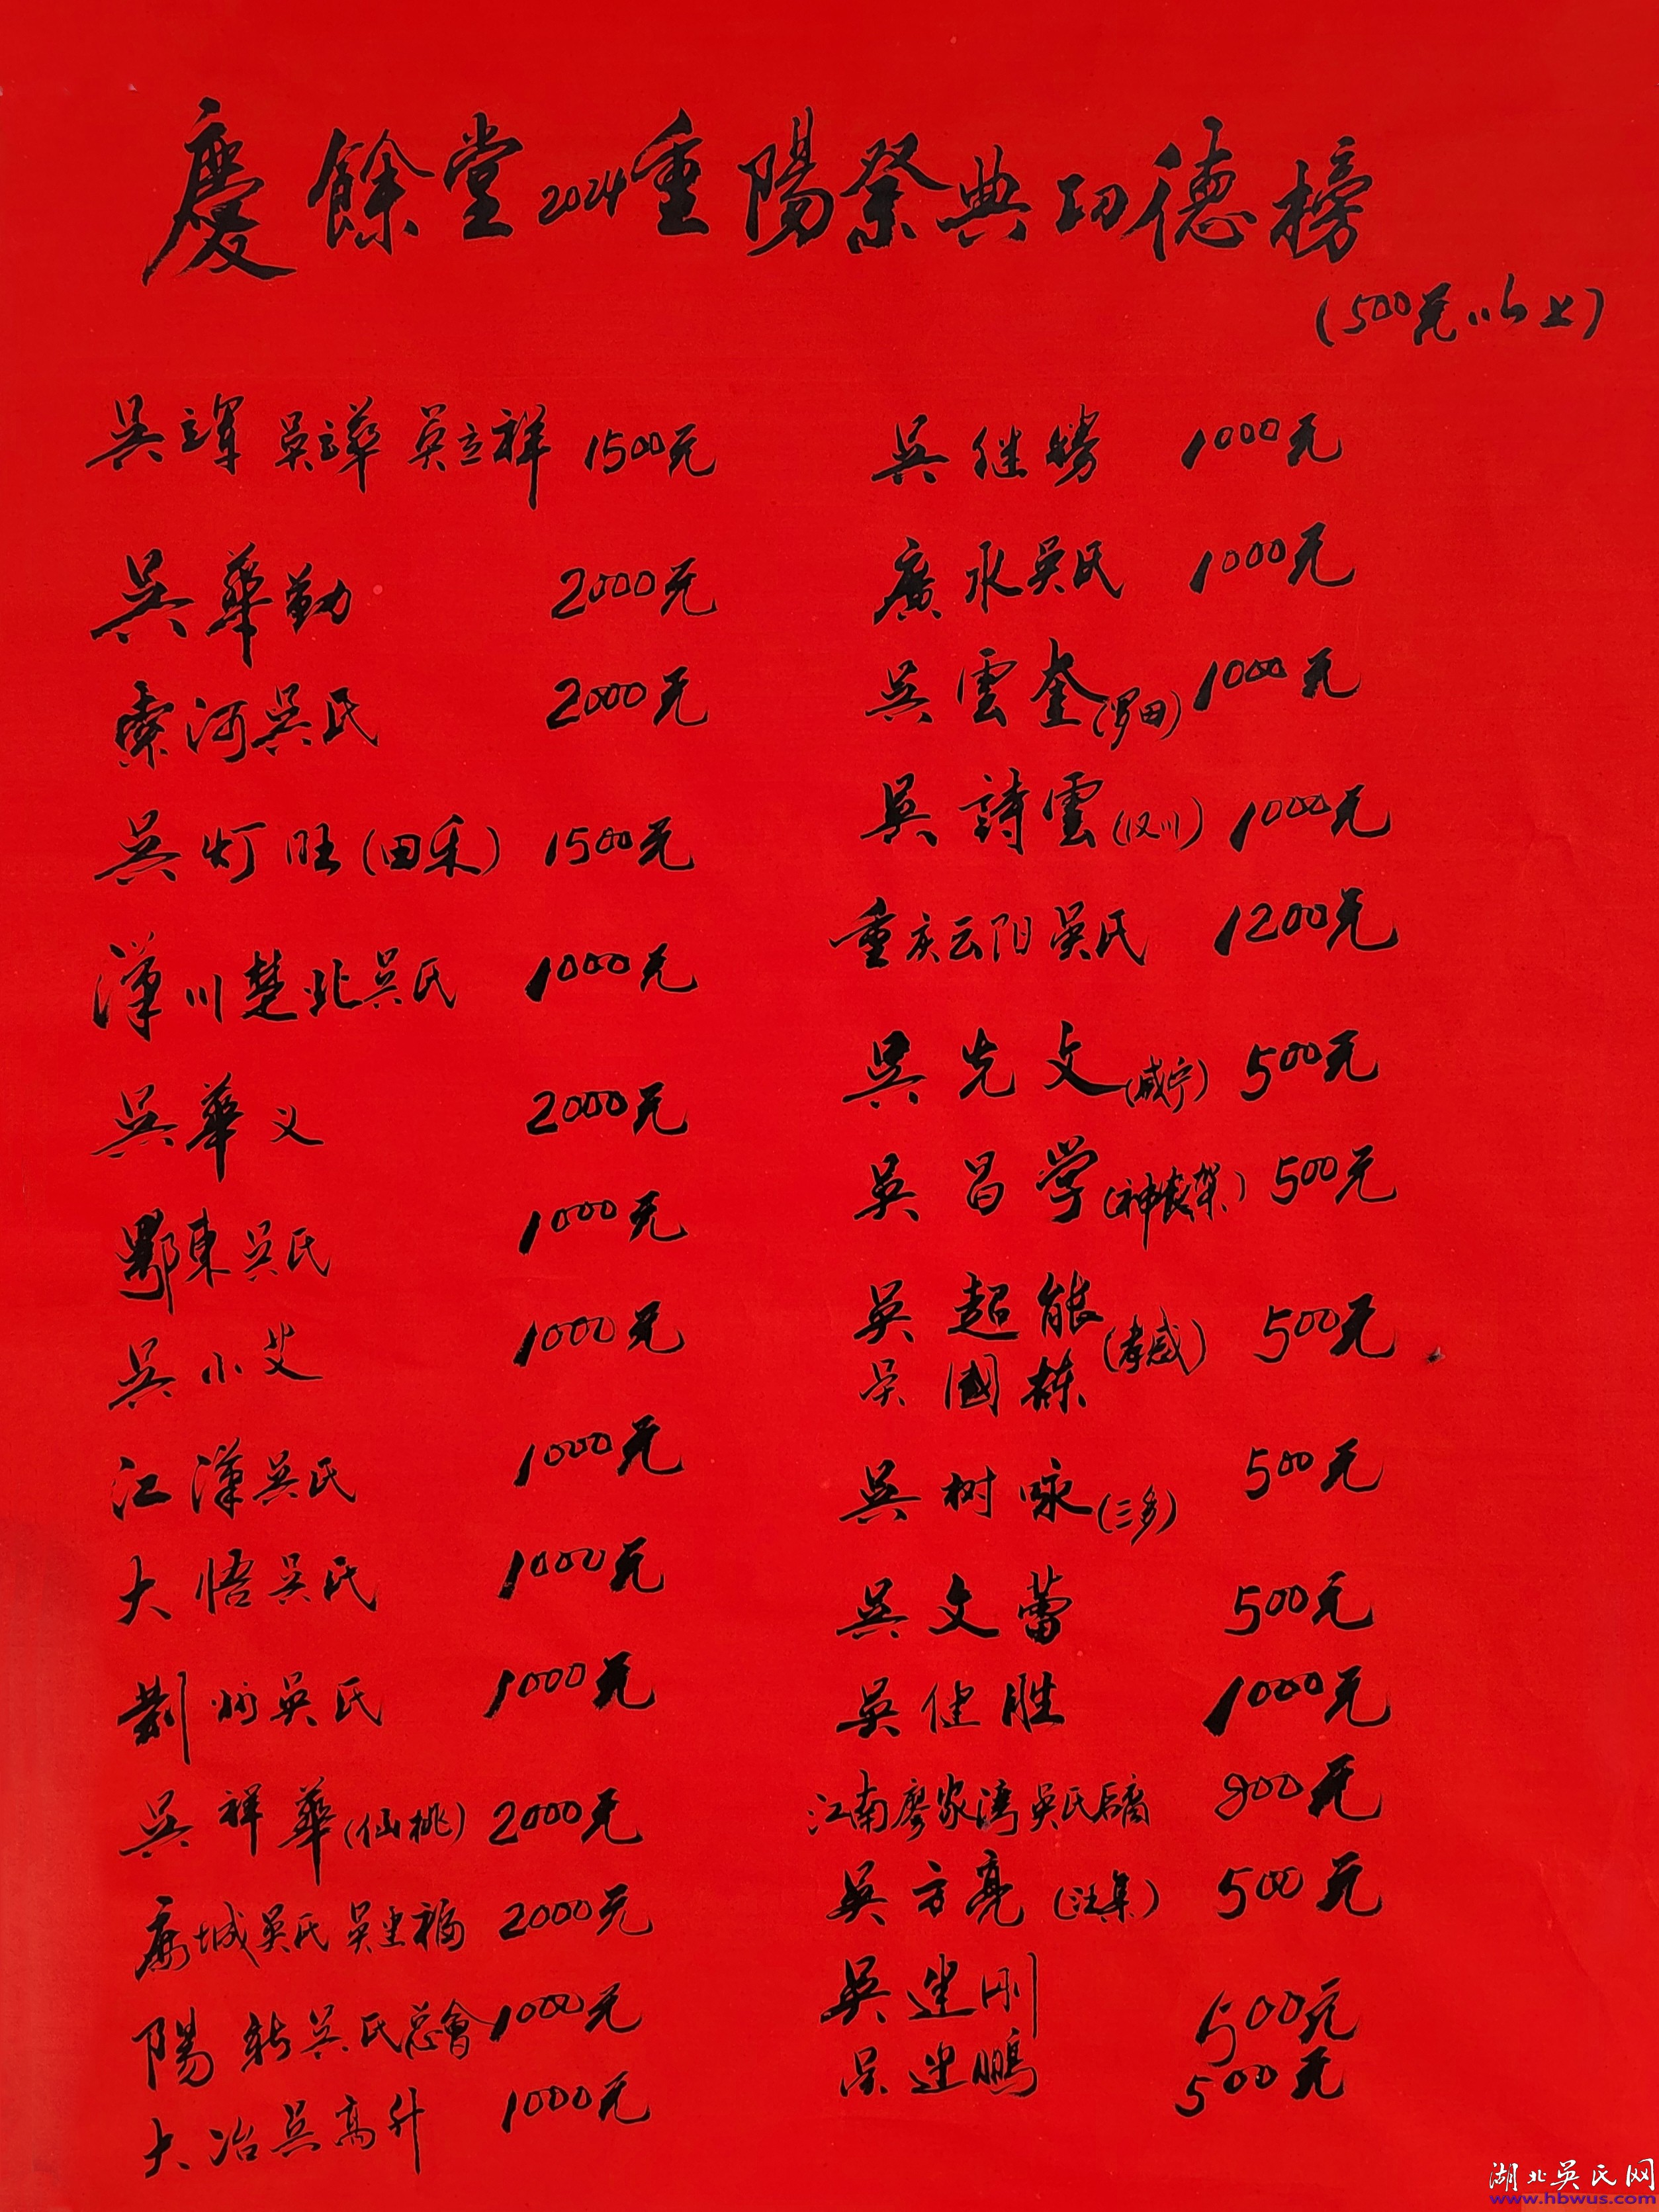 慶餘堂2024重陽祭典功德榜
(500元以上)
吳立軍 吳立華 吳立祥 1500元
吳華勤 2000元
索河吳氏 2000元
吳灯旺(田禾) 1500元
漢川楚北吳氏 1000元
吳華义 2000元
鄂東吳氏 1000元
吳小艾 1000元
江漢吳氏 1000元
大悟吳氏 1000元
荆州吳氏 1000元
吳祥華(仙桃) 2000元
城吳氏 吳建福 2000元
陽新吳氏总會 1000元
大冶吳高升 1000元
吳继勝 1000元
廣水吳氏 1000元
吳雲奎(罗田) 1000元
吳詩雲(汉川) 1000元
重庆云阳吳氏 1200元
吳先文(咸宁) 500元
吳昌学(神农架) 500元
吳超能
吴國栋
(孝感) 500元
吳树咏(三乡) 500元
吳文蕾 500元
吳健胜 1000元
江南廖家湾吳氏后裔 800元
吳方亮(汪集) 500元
吳建刚 500元
吴建鹏 500元
湖北吳氏网
www.hbwus.com